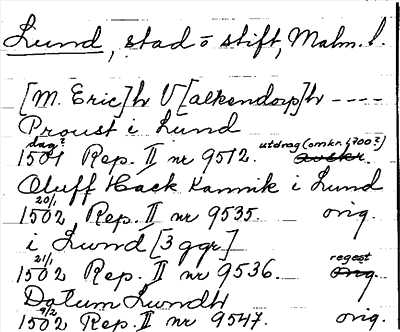 Lund, stad o stift, Malm. l.
[M. Eric]h V[alkendorp]h ----
Proust i Lund
dag? utdrag (omkr. 1700?)
1501 Rep. II nr 9512. Avskr.
Oluff Hack Kannik i Lund
20/1
1502 Rep. II nr 9535. orig.
i Lund [3 ggr]
21/1 regest
1502 Rep. II nr 9536. Orig
Datum Lundh
9/2
1502 Rep. II nr 9547. orig.